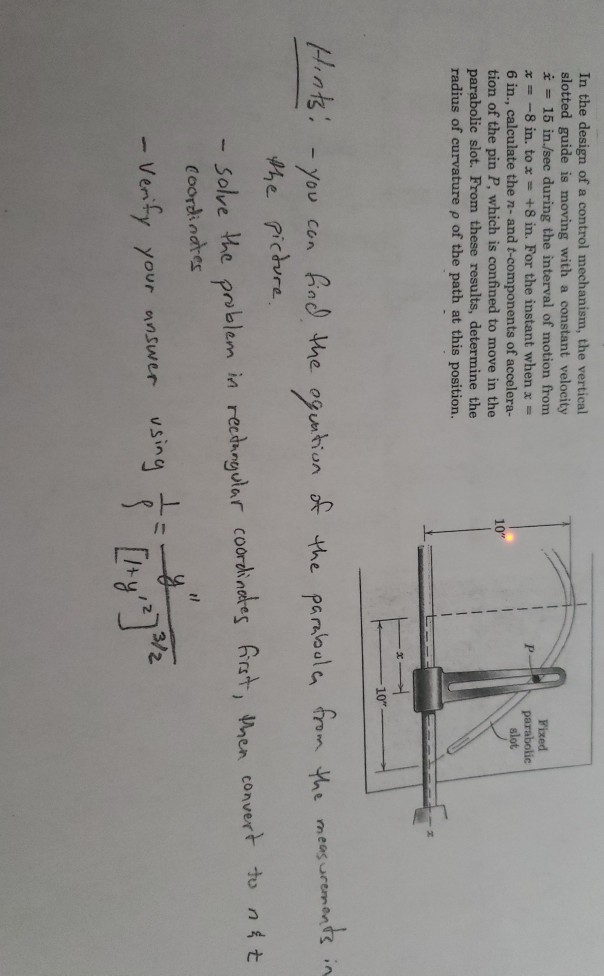 In the design of a control mechanism, the vertical
slotted guide is moving with a constant velocity
ẋ = 15 in./sec during the interval of motion from
x = −8 in. to x = +8 in. For the instant when x =
6 in., calculate the n- and t-components of accelera-
tion of the pin P, which is confined to move in the
parabolic slot. From these results, determine the
radius of curvature ρ of the path at this position.
10"
P
Fixed
parabolic
slot
x
10"
x
Hints: - you can find the equation of the parabola from the measurements in
the picture.
- solve the problem in rectangular coordinates first, then convert to n & t
coordinates
- Verify your answer using 1/ρ = y"/[1+y'²]^3/2